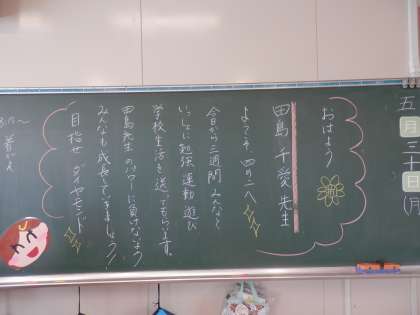 五月三十日(月)
おはよう
田島 千愛 先生
ようこそ、四の二へ
今日から三週間みんなと
いっしょに勉強、運動、遊び
学校生活を送ってもらいます。
田島先生のパワーに負けないよう
みんなも成長していきましょう!
目指せ ダイヤモンド